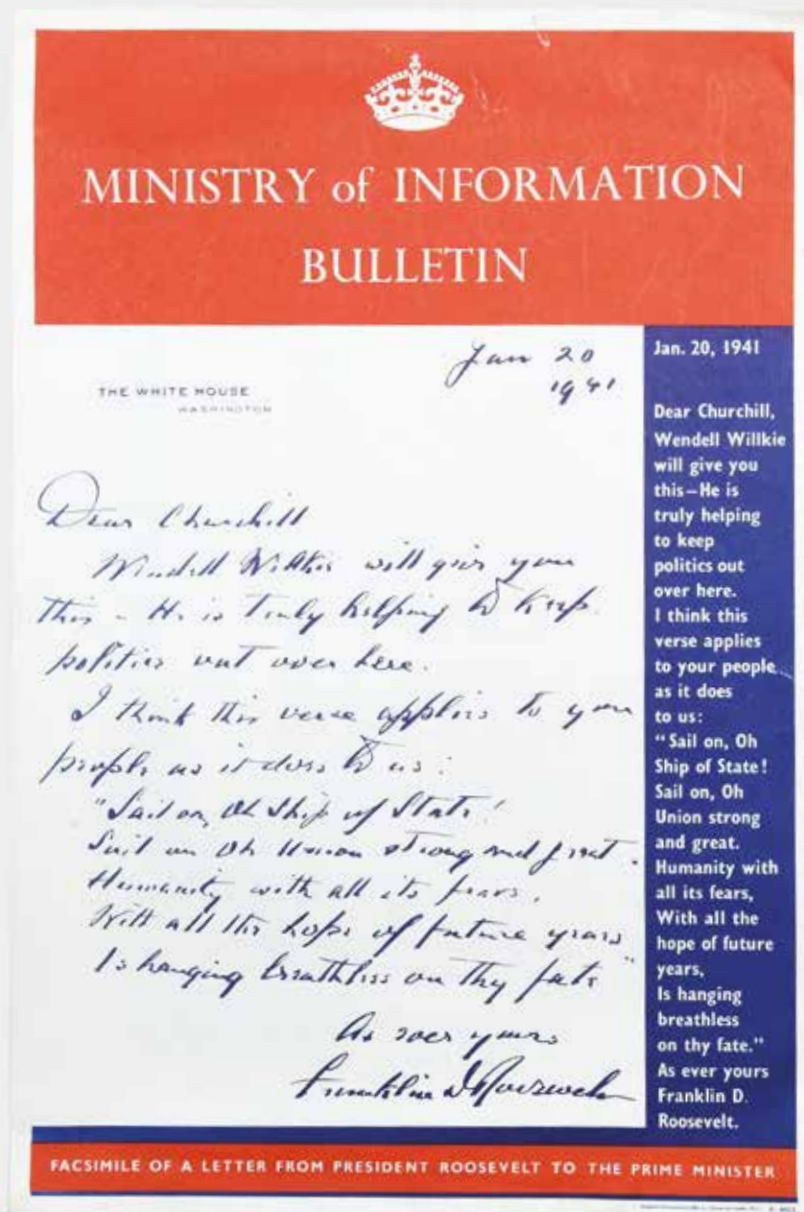 MINISTRY of INFORMATION
BULLETIN
THE WHITE HOUSE
WASHINGTON
Jan 20
1941
Dear Churchill
Wendell Willkie will give you
this – He is truly helping to keep
politics out over here.
I think this verse applies to your
people as it does to us:
"Sail on, Oh Ship of State!
Sail on Oh Union strong and great.
Humanity with all its fears,
With all the hope of future years
Is hanging breathless on thy fate"
As ever yours
Franklin D Roosevelt
Jan. 20, 1941
Dear Churchill,
Wendell Willkie
will give you
this—He is
truly helping
to keep
politics out
over here.
I think this
verse applies
to your people
as it does
to us:
"Sail on, Oh
Ship of State!
Sail on, Oh
Union strong
and great.
Humanity with
all its fears,
With all the
hope of future
years,
Is hanging
breathless
on thy fate."
As ever yours
Franklin D.
Roosevelt.
FACSIMILE OF A LETTER FROM PRESIDENT ROOSEVELT TO THE PRIME MINISTER